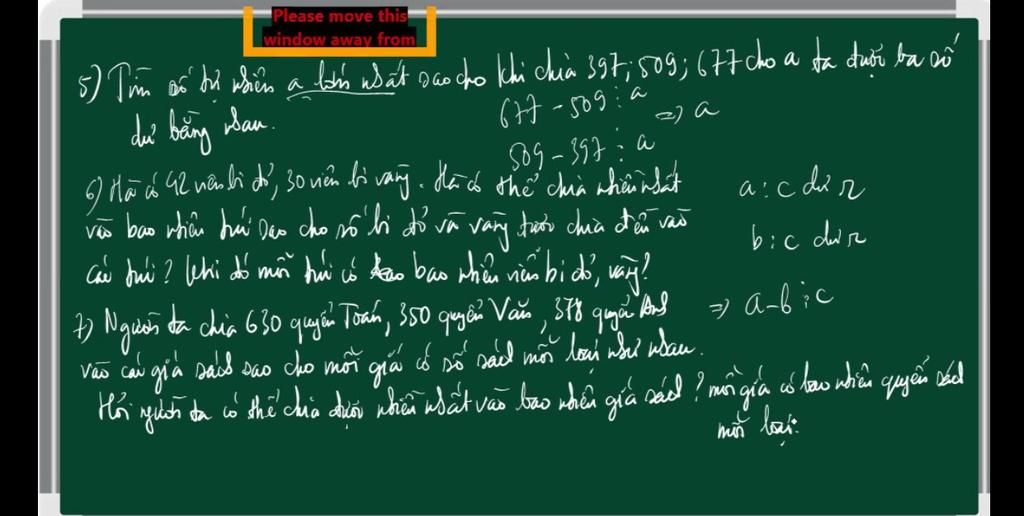 Please move this
window away from
5) Tìm số tự nhiên a lớn nhất sao cho khi chia 397; 509; 677 cho a ta được ba số
dư bằng nhau.
677 - 509 ⋮ a
=> a
509 - 397 ⋮ a
6) Hà có 42 viên bi đỏ, 30 viên bi vàng. Hà có thể chia nhiều nhất
vào bao nhiêu túi sao cho số bi đỏ và vàng được chia đều vào
các túi? Khi đó mỗi túi có bao nhiêu viên bi đỏ, vàng?
a : c dư r
b : c dư r
=> a - b ⋮ c
7) Người ta chia 630 quyển Toán, 350 quyển Văn, 378 quyển Anh
vào các giá sách sao cho mỗi giá có số sách mỗi loại như nhau.
Hỏi người ta có thể chia được nhiều nhất vào bao nhiêu giá sách? mỗi giá có bao nhiêu quyển sách
mỗi loại.